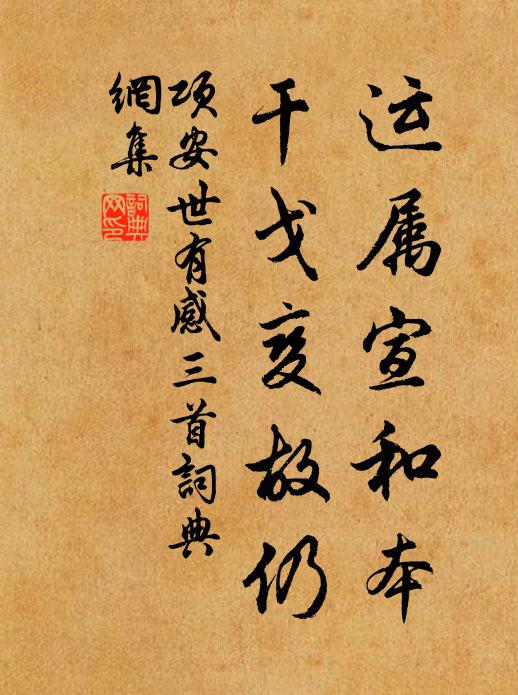 运属宣和本
干戈变故仍
项安世有感三首詞典
網集
詞典
网印